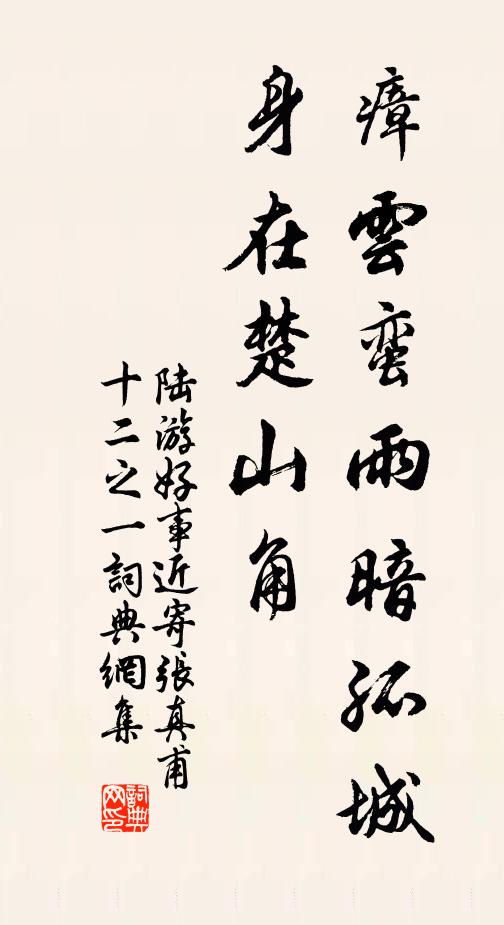 瘴雲蛮雨暗孤城
身在楚山角
陆游好事近寄張真甫
十二之一詞典網集
詞典网印